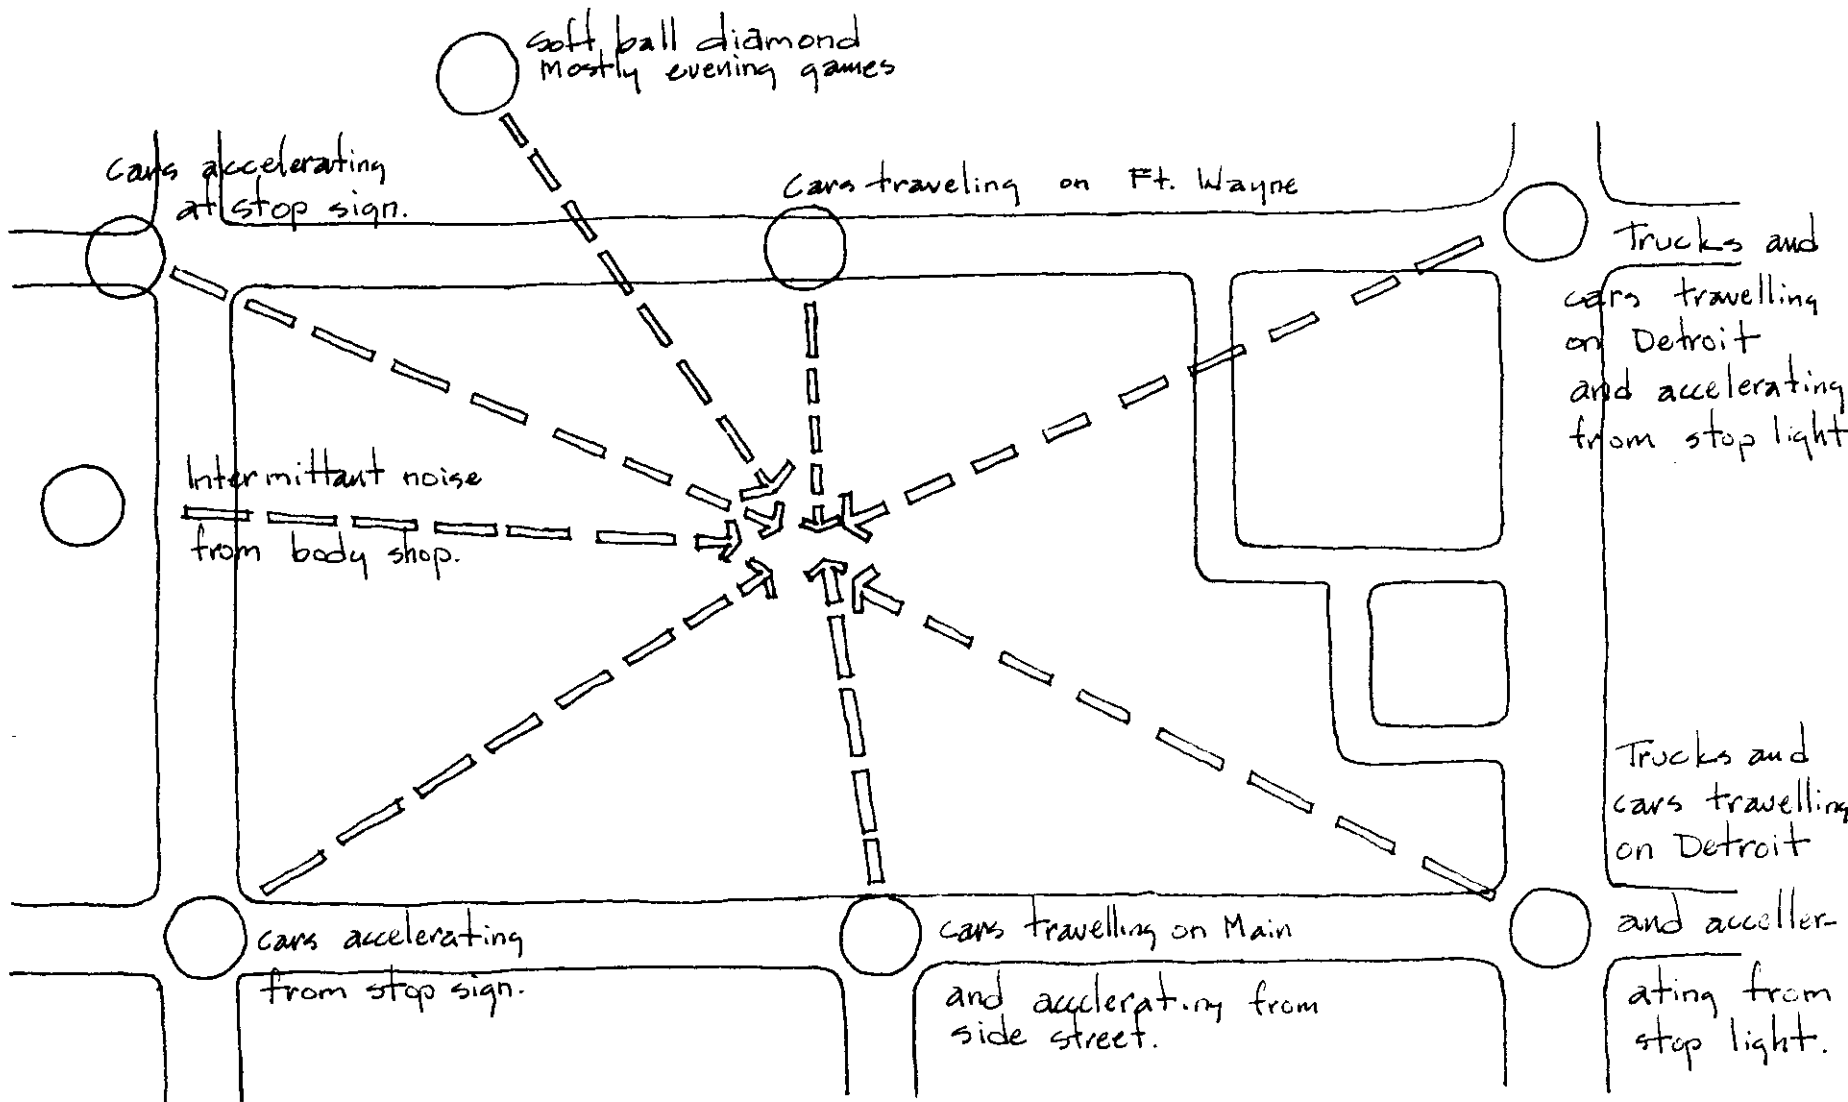 soft ball diamond
mostly evening games
cars accelerating
at stop sign.
cars traveling on Ft. Wayne
Trucks and
cars travelling
on Detroit
and accelerating
from stop light
Intermittant noise
from body shop.
Trucks and
cars travelling
on Detroit
and acceller-
ating from
stop light.
cars accelerating
from stop sign.
cars travelling on Main
and acclerating from
side street.